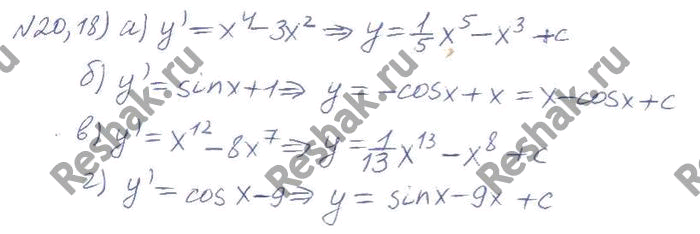 №20,18) а) y' = x⁴ - 3x² ⇒ y = 1/5 x⁵ - x³ + c
б) y' = sinx + 1 ⇒ y = -cosx + x = x - cosx + c
в) y' = x¹² - 8x⁷ ⇒ y = 1/13 x¹³ - x⁸ + c
г) y' = cosx - 9 ⇒ y = sinx - 9x + c
Reshak.ru
Reshak.ru
Reshak.ru